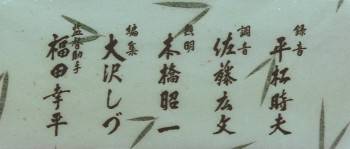 録音
平松時夫
調音
佐藤広文
照明
本橋昭一
編集
大沢しづ
監督助手
福田幸平